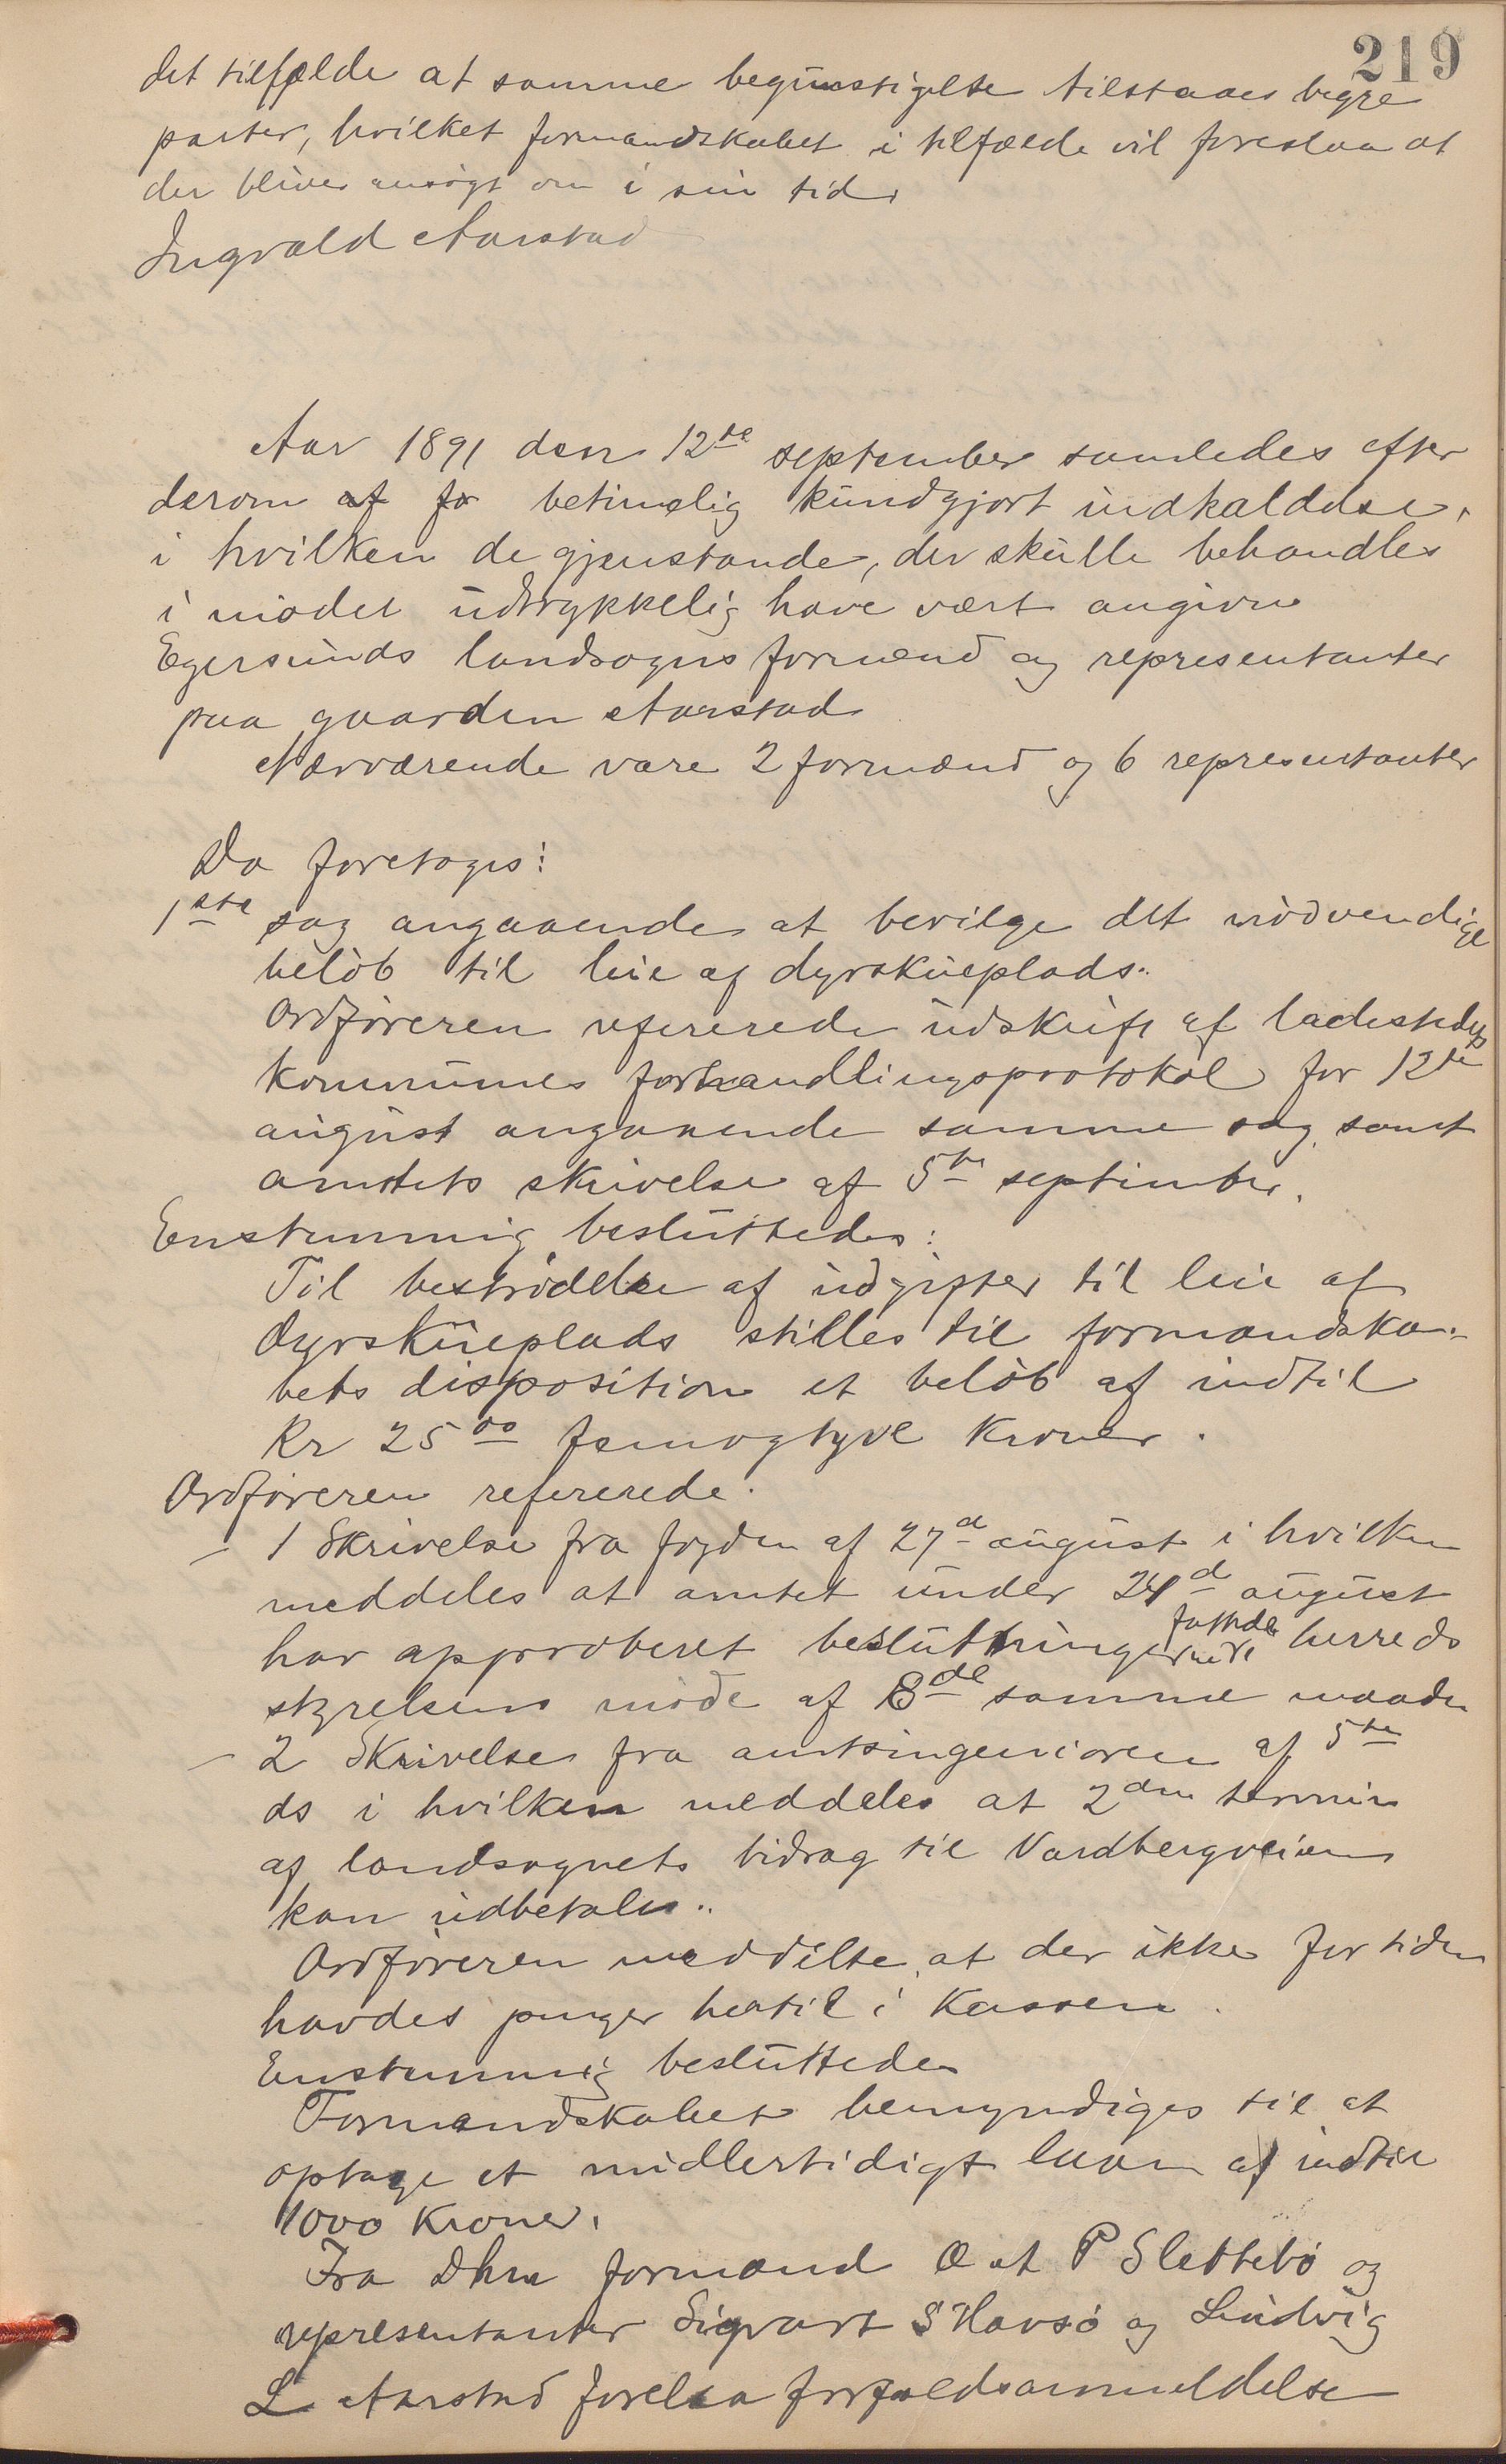 219
det tilfælde at samme begunstigelse tilstaaes begge
parter, hvilket formandskabet i tilfælde vil foreslaa at
der bliver ansøgt om i sin tid.
Ingvald Aarstad
Aar 1891 den 12te september samledes efter
derom af fo betimelig kundgjort indkaldelse,
i hvilken de gjenstande, der skulle behandles
i mødet udtrykkelig have vært angivne
Egersunds landsogns formænd og representanter
paa gaarden Aarstad
Nærværende vare 2 formænd og 6 representanter
Da foretoges:
1ste sag angaaende at bevilge det nødvendige
beløb til leie af dyrskueplads.
Ordføreren refererede udskrift af ladestedets
kommunes forhandlingsprotokol for 12te
august angaaende samme sag samt
amtets skrivelse af 5te september.
Enstemmig besluttedes:
Til bestridelse af udgifter til leie af
dyrskueplads stilles til formandska-
bets disposition et beløb af indtil
Kr 25 00 femogtyve kroner.
Ordføreren refererede.
- 1 Skrivelse fra fogden af 27d august i hvilken
meddeles at amtet under 24d august
har approberet beslutninger fattede herreds
styrelsens møde af 8de samme maaned
- 2 Skrivelse fra amtsingeniøren af 5te
ds i hvilken meddeles at 2den termin
af landsognets bidrag til Vardbergveien
kan udbetales.
Ordføreren meddelte, at der ikke for tiden
havdes penger hertil i Kassen.
Enstemmig besluttedes
Formandskabet bemyndiges til at
optage et midlertidigt laan af indtil
1000 Kroner.
Fra Dhrr formænd O at P Slettebø og
representanter Sigvart S Havsø og Ludvig
L Aarstad forelaa forfaldsanmeldelse